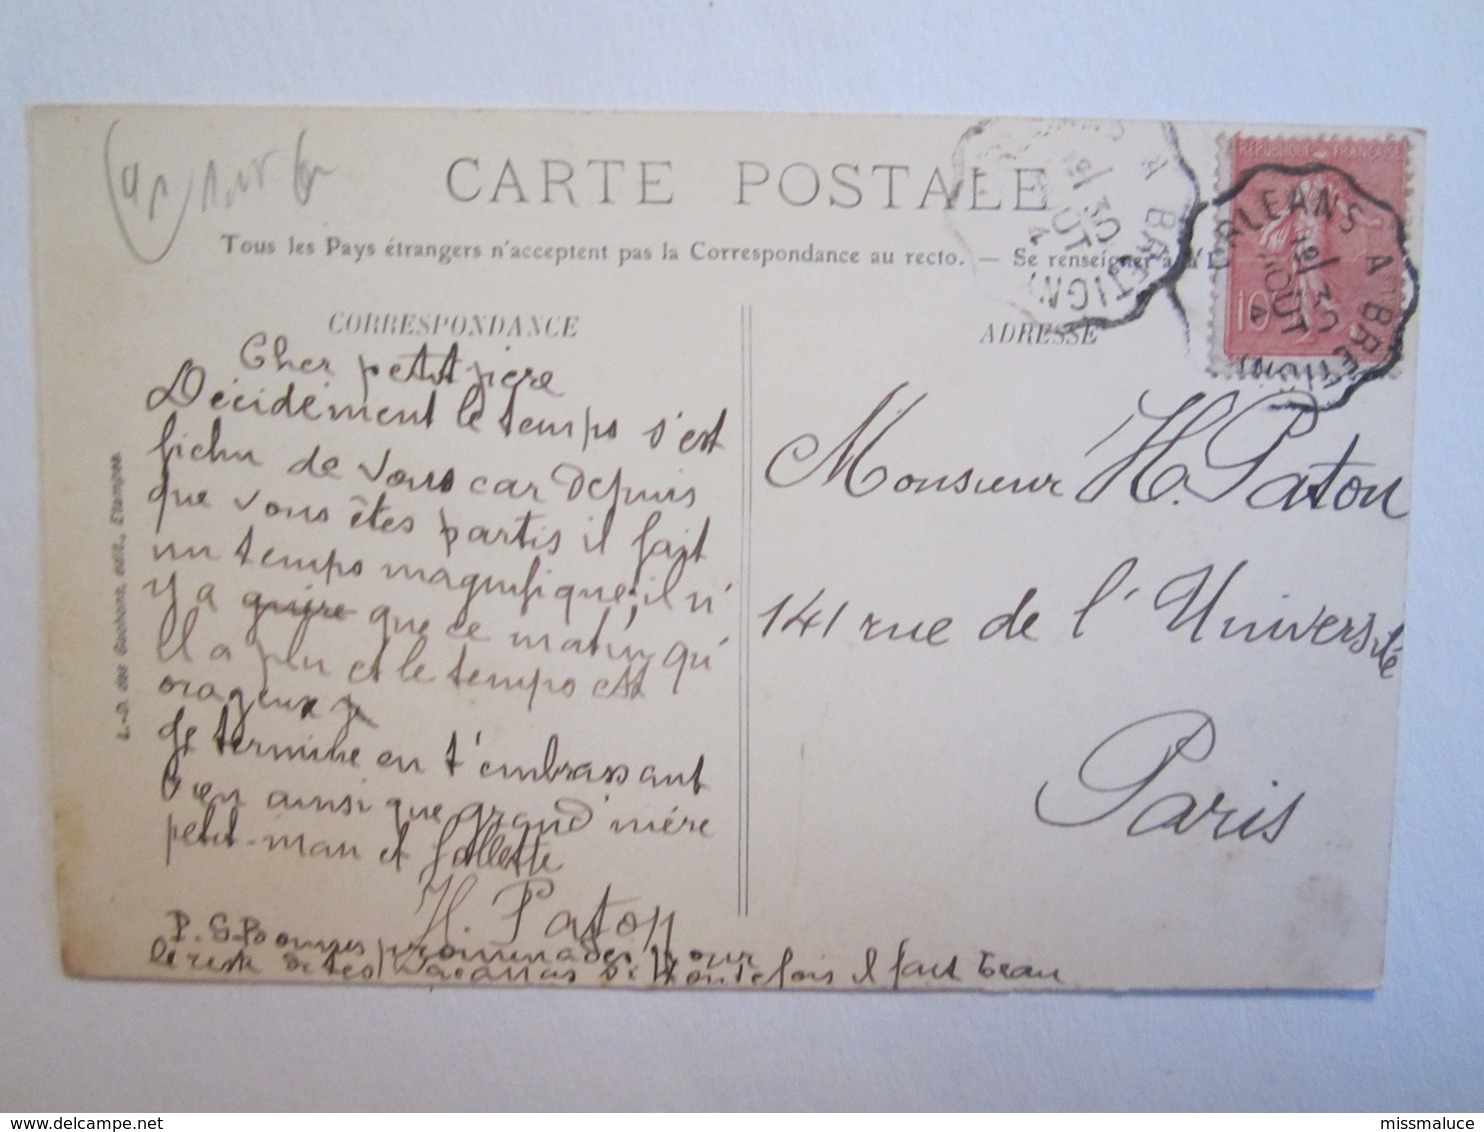 CARTE POSTALE
Tous les Pays étrangers n'acceptent pas la Correspondance au recto. — Se renseigner à
CORRESPONDANCE
Cher petit père
Décidément le temps s'est
fichu de vous car depuis
que vous êtes partis il fait
un temps magnifique; il n'
y a guère que ce matin qu'
il a plu et le temps est
orageux
Je termine en t'embrassant
bien ainsi que grand'mère
petit-man et follette
H. Paton
P.S. Bonnes promenades pour
le reste de tes vacances si toutefois il fait beau
L.-D. des Gachons, édit., Etampes.
ADRESSE
Monsieur H. Paton
141 rue de l'Université
Paris
REPUBLIQUE FRANÇAISE
10
ORLEANS A BRETIGNY
30
AOUT
A BRETIGNY
30
OUT